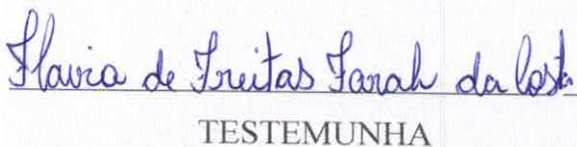 Flavia de Freitas Farah da Costa
TESTEMUNHA